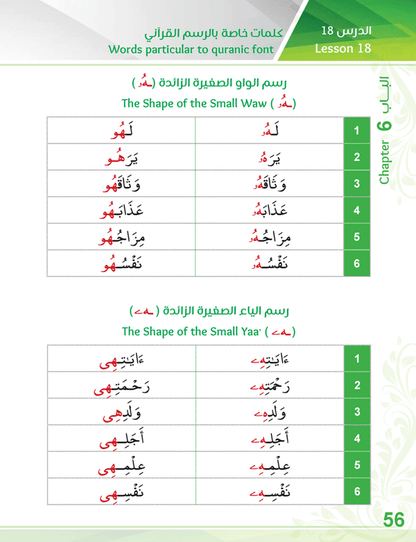 الدرس 18
Lesson 18
كلمات خاصة بالرسم القرآني
Words particular to quranic font
الباب 6
Chapter 6
رسم الواو الصغيرة الزائدة (ـهُۥ)
The Shape of the Small Waw (ـهُۥ)
1 لَهُۥ لَـهُو
2 يَرَهُۥ يَرَهُـو
3 وَثَاقَهُۥ وَثَاقَهُو
4 عَذَابَهُۥ عَذَابَـهُو
5 مِزَاجُـهُۥ مِزَاجُـهُو
6 نَفْسُـهُۥ نَفْسُـهُو
رسم الياء الصغيرة الزائدة (ـهِۦ)
The Shape of the Small Yaa' (ـهِۦ)
1 ءَايَـٰتِهِۦ ءَايَـٰتِـهِي
2 رَحْمَتِهِۦ رَحْـمَتِـهِي
3 وَلَدِهِۦ وَلَدِهِي
4 أَجَلِـهِۦ أَجَلِـهِي
5 عِلْمِـهِۦ عِلْمِـهِي
6 نَفْسِـهِۦ نَفْسِـهِي
56